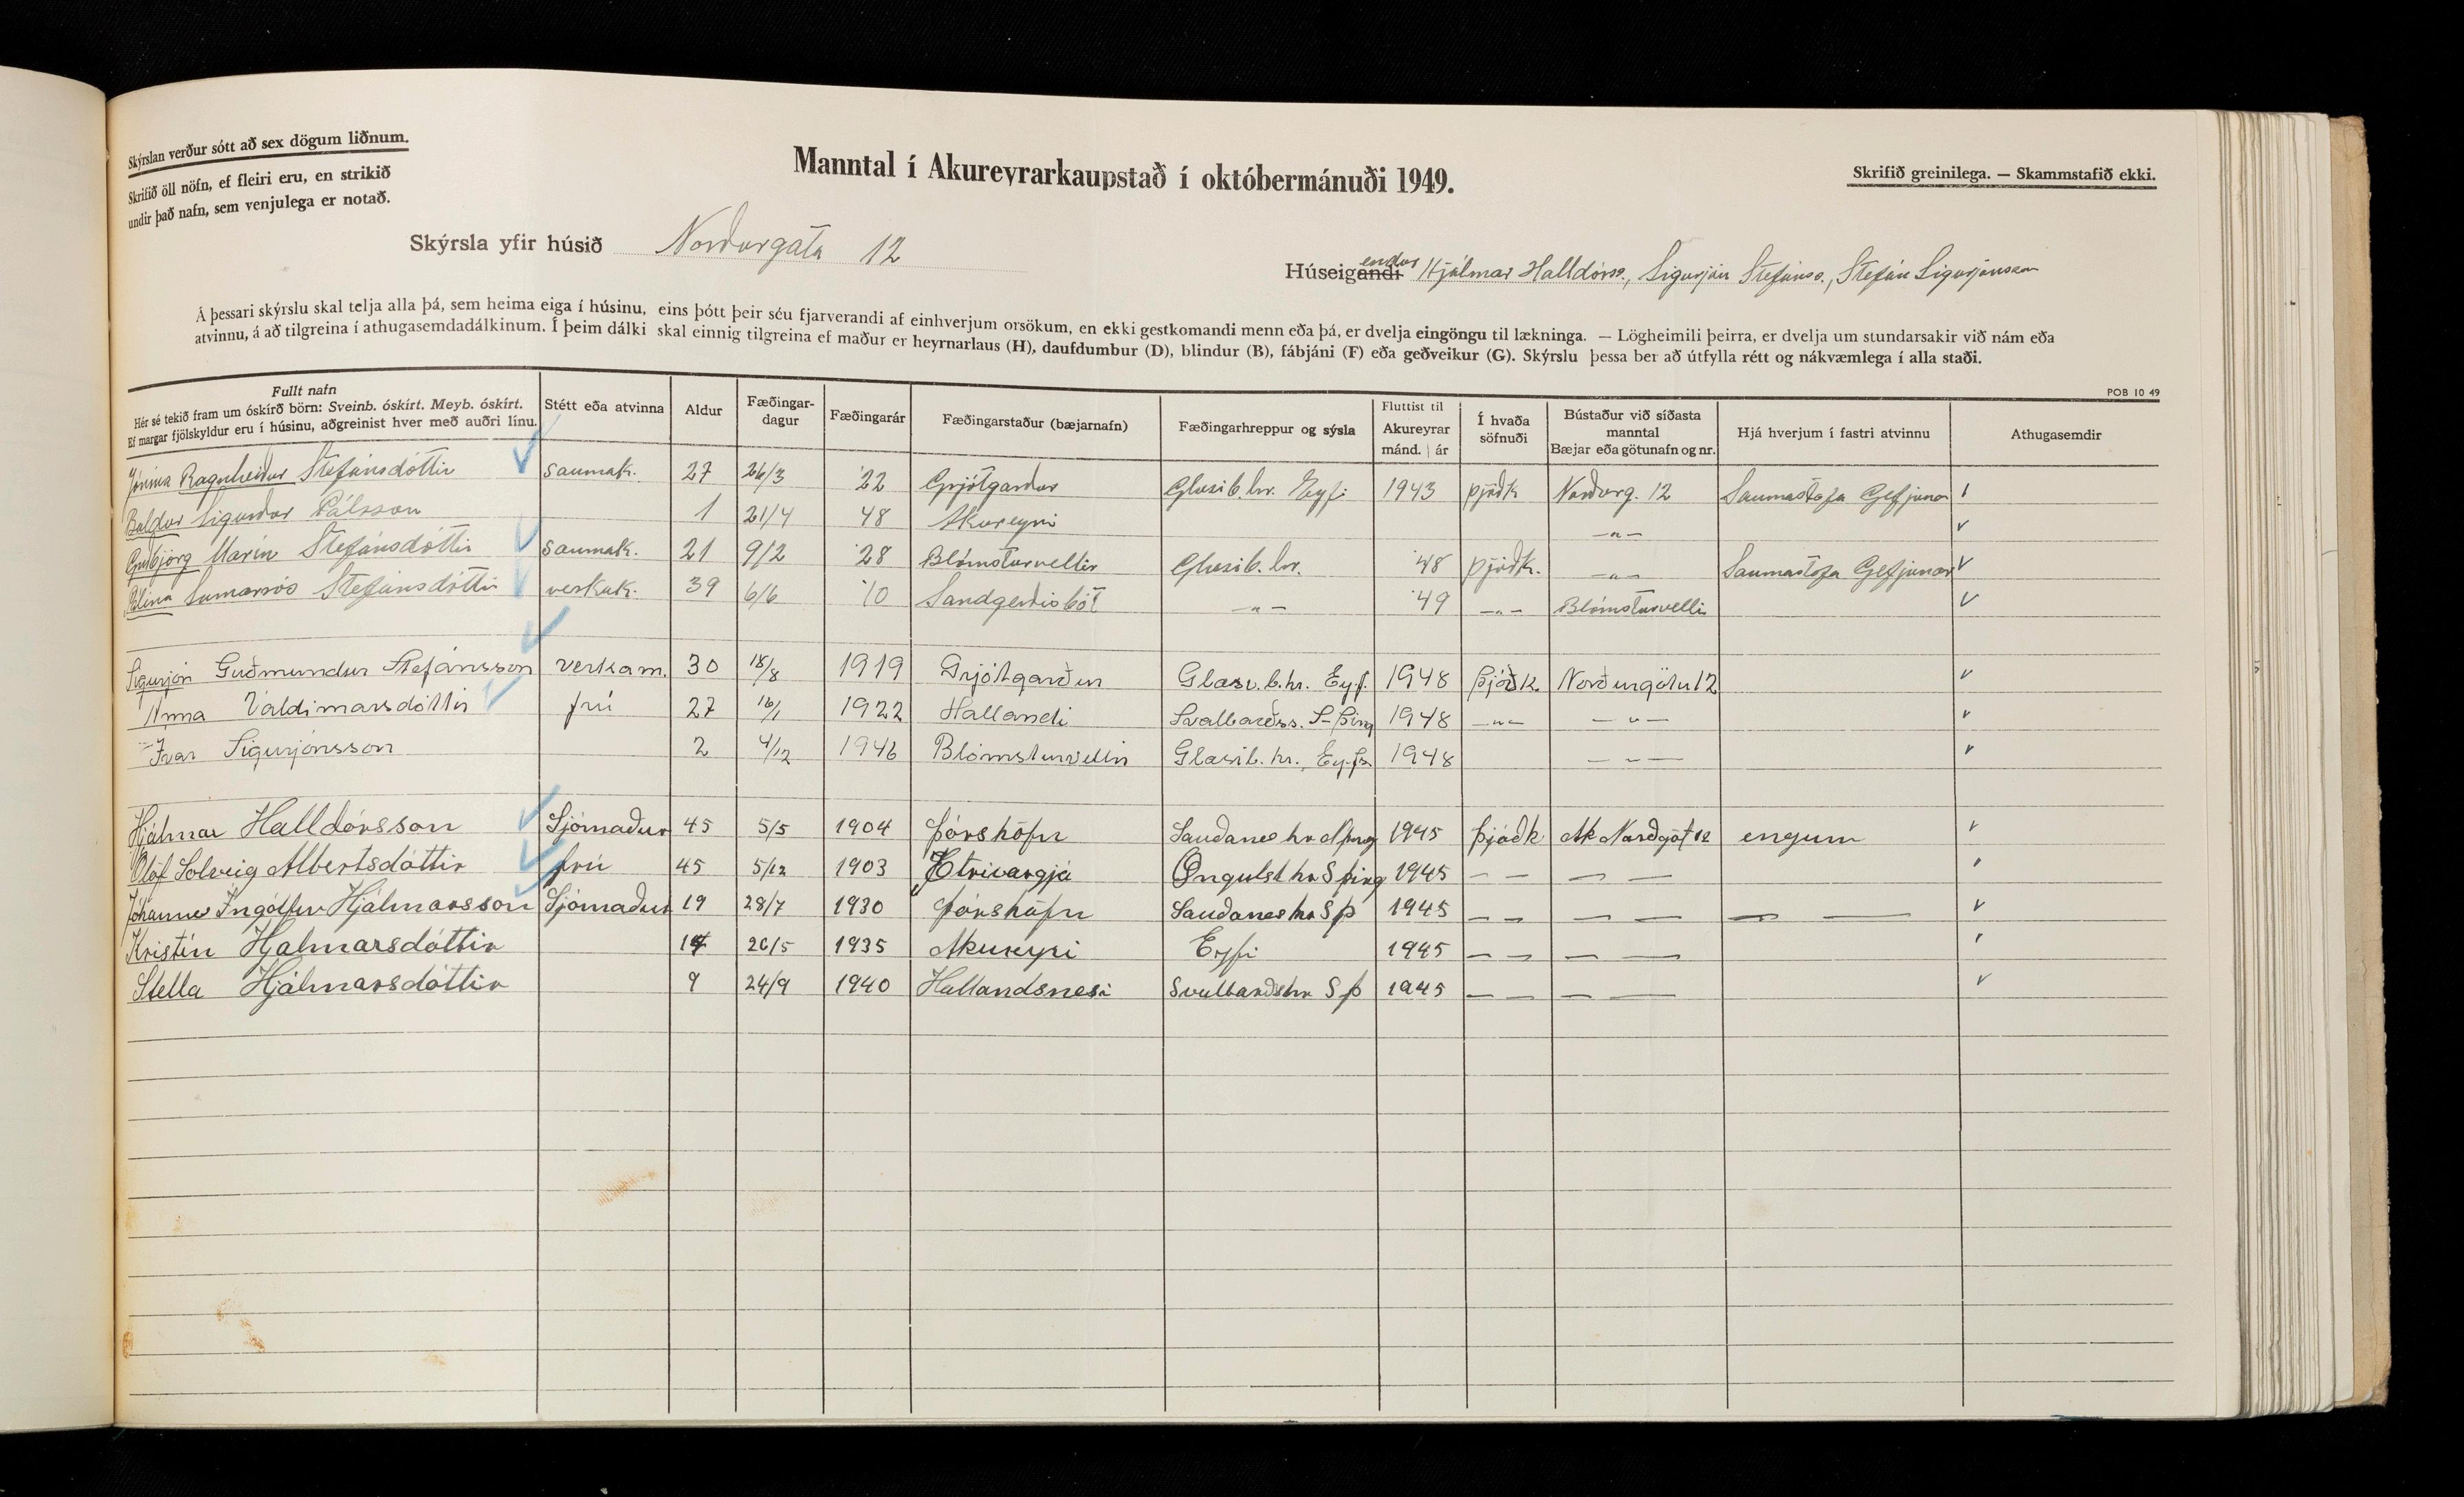 Skýrslan verður sótt að sex dögum liðnum.
Skrifið öll nöfn, ef fleiri eru, en strikið
undir það nafn, sem venjulega er notað.
Manntal í Akureyrarkaupstað í októbermánuði 1949.
Skrifið greinilega. — Skammstafið ekki.
Skýrsla yfir húsið Norðurgata 12
Húseigandi endur Hjálmar Halldórss., Sigurjón Stefánss., Stefán Sigurjónsson
Á þessari skýrslu skal telja alla þá, sem heima eiga í húsinu, eins þótt þeir séu fjarverandi af einhverjum orsökum, en ekki gestkomandi menn eða þá, er dvelja eingöngu til lækninga. — Lögheimili þeirra, er dvelja um stundarsakir við nám eða
atvinnu, á að tilgreina í athugasemdadálkinum. Í þeim dálki skal einnig tilgreina ef maður er heyrnarlaus (H), daufdumbur (D), blindur (B), fábjáni (F) eða geðveikur (G). Skýrslu þessa ber að útfylla rétt og nákvæmlega í alla staði.
POB 10 49
Fullt nafn
Hér sé tekið fram um óskírð börn: Sveinb. óskírt. Meyb. óskírt.
Ef margar fjölskyldur eru í húsinu, aðgreinist hver með auðri línu.
Stétt eða atvinna
Aldur
Fæðingar-
dagur
Fæðingarár
Fæðingarstaður (bæjarnafn)
Fæðingarhreppur og sýsla
Fluttist til
Akureyrar
mánd. | ár
Í hvaða
söfnuði
Bústaður við síðasta
manntal
Bæjar eða götunafn og nr.
Hjá hverjum í fastri atvinnu
Athugasemdir
Jónína Ragnheiður Stefánsdóttir saumak. 27 26/3 '22 Grjótgarður Glæsib.hr. Eyfi 1943 þjóðk Norðurg. 12 Saumastofa Gefjunar
Baldur Sigurður Pálsson 1 21/4 48 Akureyri -"-
Guðbjörg Marín Stefánsdóttir saumak. 21 9/2 '28 Blómsturvellir Glæsib.hr. '48 þjóðk. -"- Saumastofa Gefjunar
Elína Sumarrós Stefánsdóttir verkak. 39 6/6 '10 Sandgerðisbót -"- '49 -"- Blómsturvelli
Sigurjón Guðmundur Stefánsson verkam. 30 18/8 1919 Grjótgarður Glæsi.b.hr. Eyf. 1948 þjóðk. Norðurgötu 12
Anna Valdimarsdóttir frú 27 16/1 1922 Hallandi Svalbarðss. S-Þing 1948 -"- -"-
Ívar Sigurjónsson 2 4/12 1946 Blómsturvellir Glæsib. hr. Eyf. 1948 -"-
Hjálmar Halldórsson Sjómaður 45 5/5 1904 Þórshöfn Sauðanes hr NÞing 1945 Þjóðk Ak Norðgöt 12 engum
Ólöf Solveig Albertsdóttir frú 45 5/12 1903 Öngulst hr S þing 1945 — — — —
Jóhannes Ingólfur Hjálmarsson Sjómaður 19 28/7 1930 Þórshöfn Sauðanes hr S Þ 1945 — — — — — —
Kristín Hjalmarsdóttir 14 26/5 1935 Akureyri Eyfi 1945 — — — —
Stella Hjálmarsdóttir 9 24/9 1940 Hallandsnesi Svalbarðshr S Þ 1945 — — — —